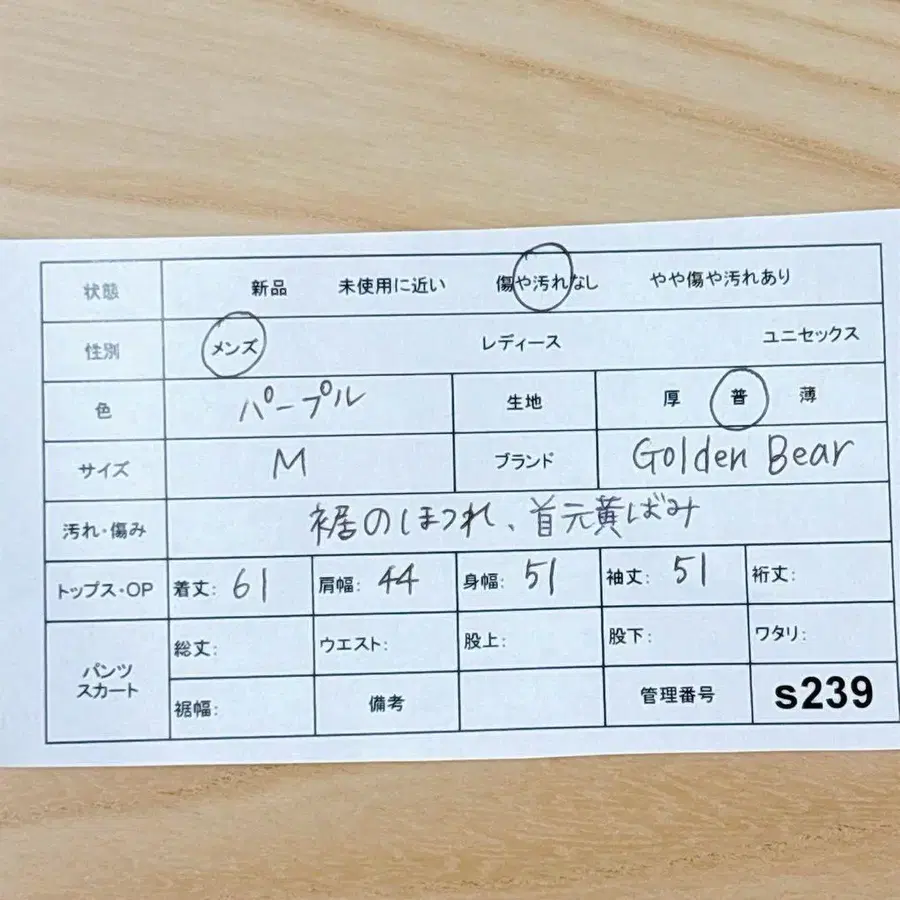 状態 新品 未使用に近い 傷や汚れなし やや傷や汚れあり
性別 メンズ レディース ユニセックス
色 パープル 生地 厚 普 薄
サイズ M ブランド Golden Bear
汚れ・傷み 裾のほつれ、首元黄ばみ
トップス・OP 着丈: 61 肩幅: 44 身幅: 51 袖丈: 51 裄丈:
パンツ
スカート
総丈: ウエスト: 股上: 股下: ワタリ:
裾幅: 備考 管理番号 s239